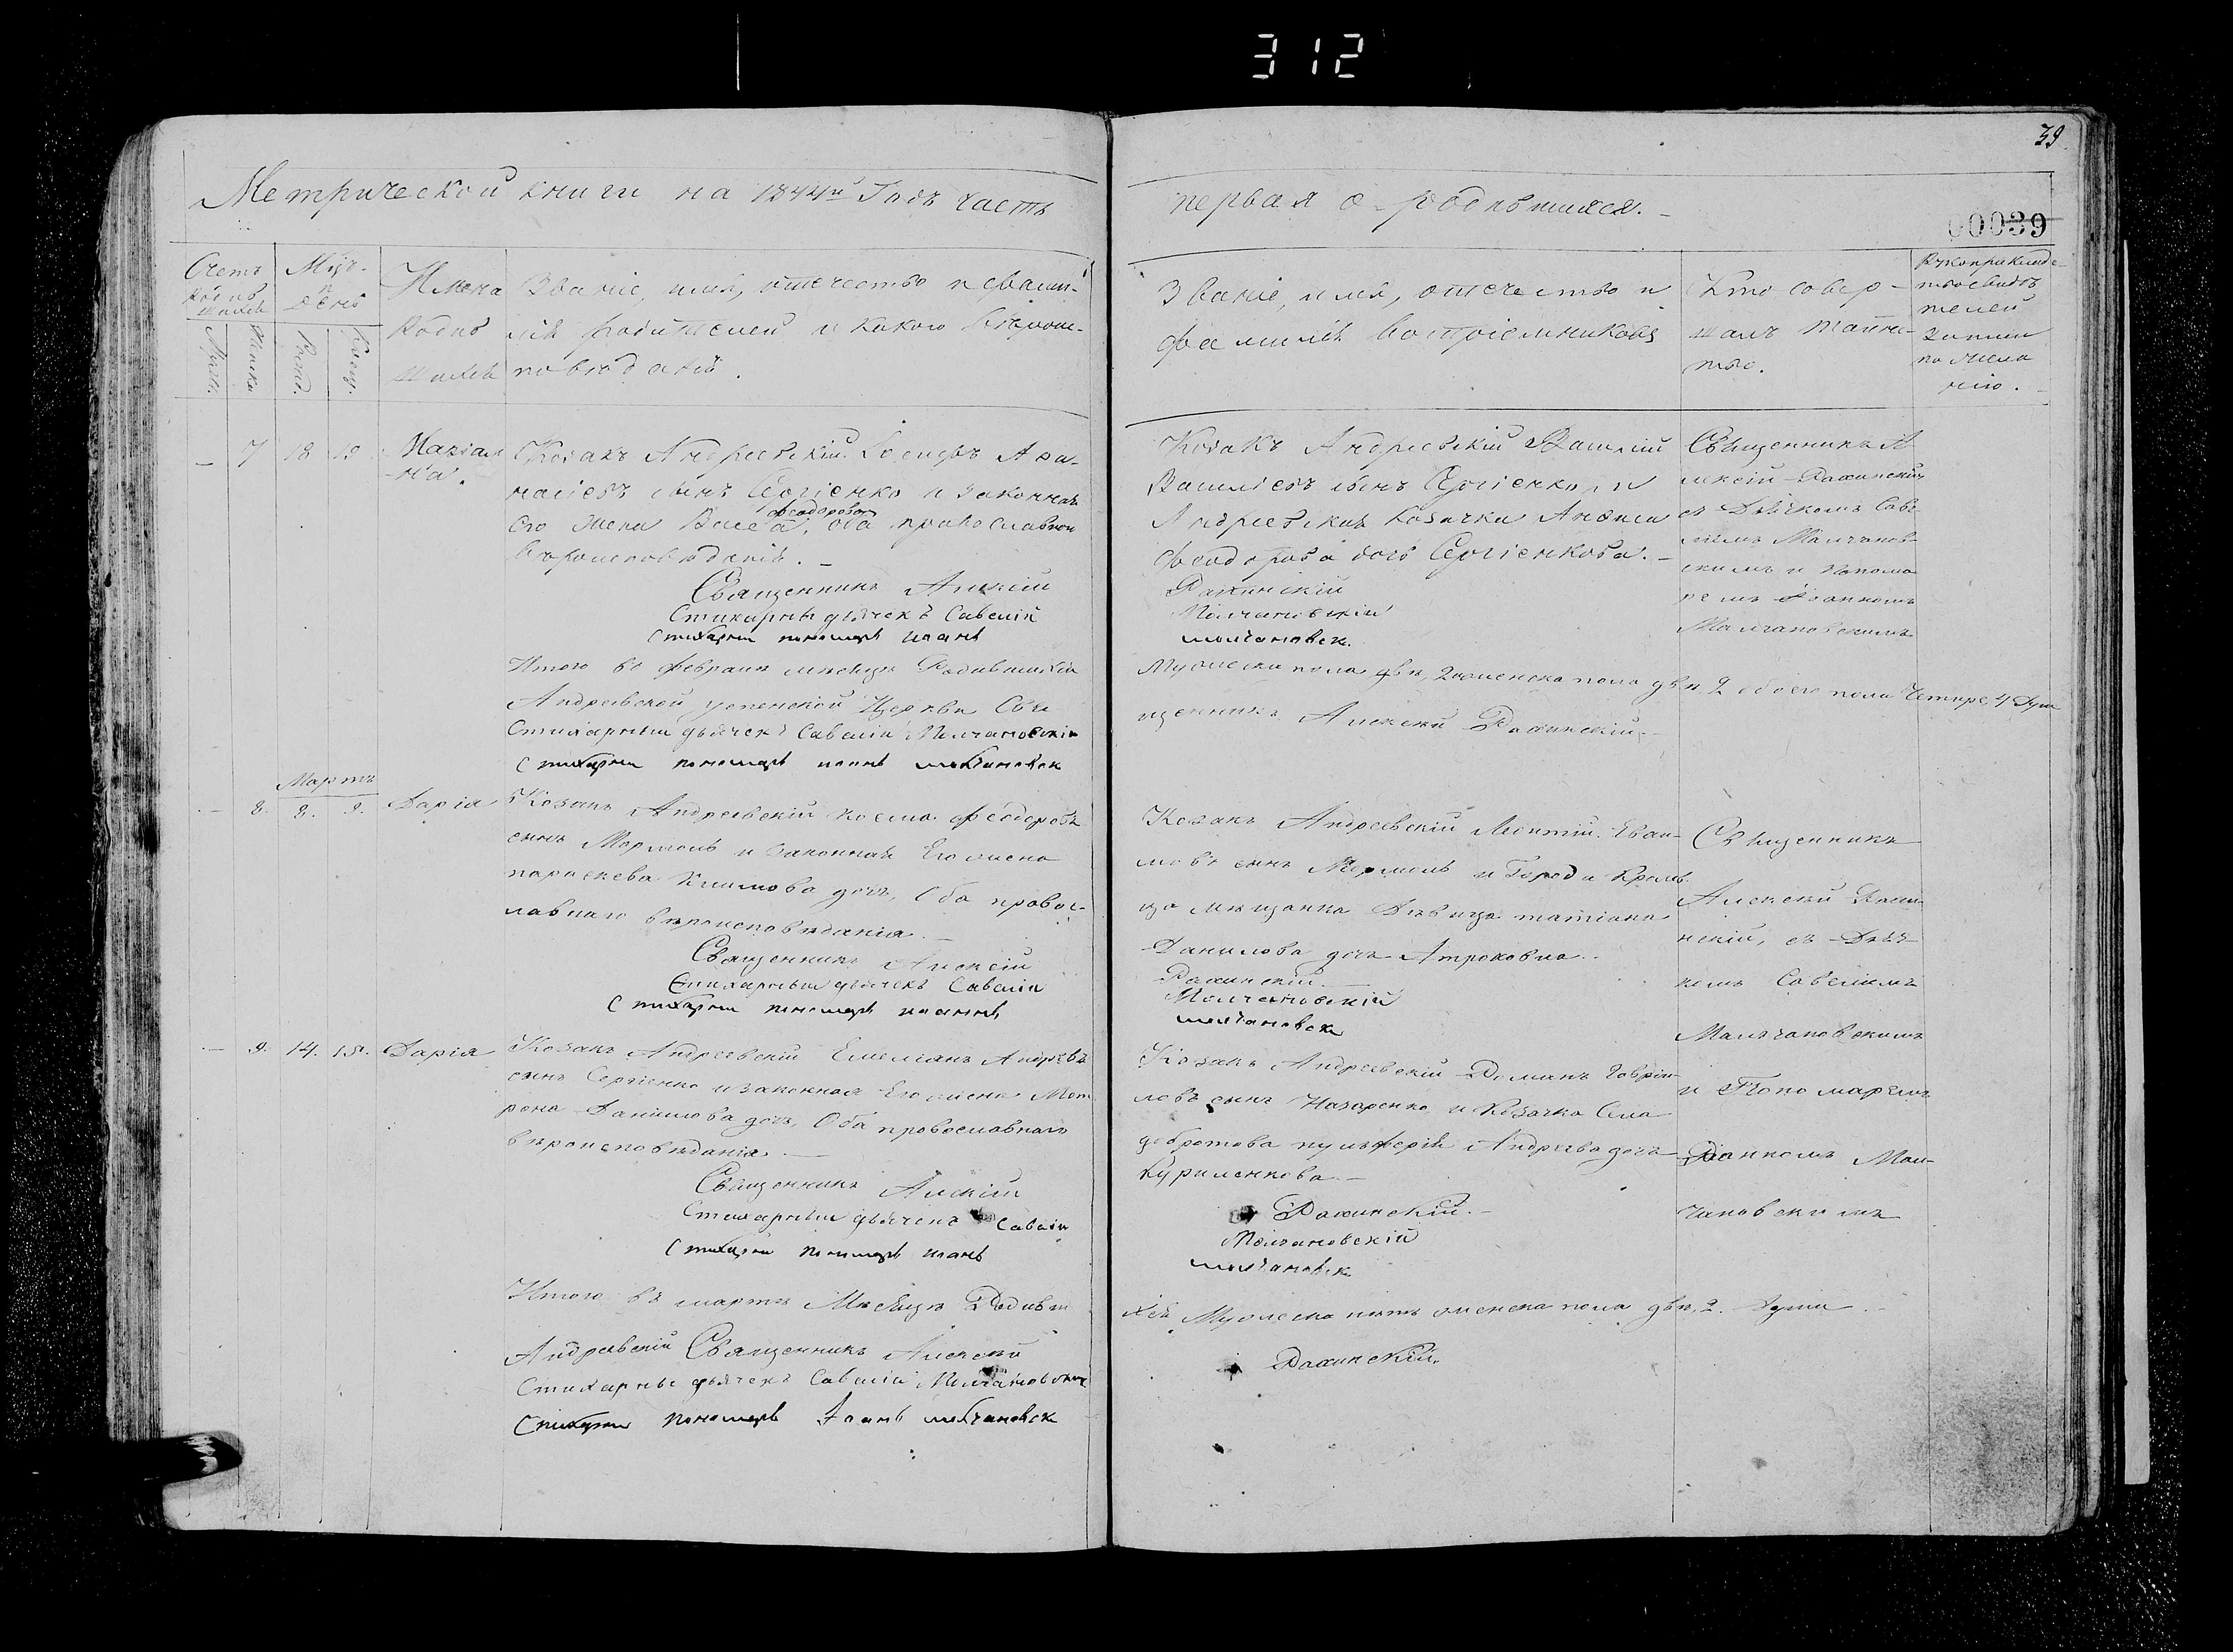 312
39
00039
Метрической книги на 1844й Годъ часть
первая о родившихся.
Счетъ
родив
шихся
Мужс.
Женска
Мѣц.
и
день
Рожд.
Крещ.
Имена
Родив
шихся
Званіе, имя, отечество и фами-
лія родителей и какого вѣроис-
повѣданія.
Званіе, имя, отечество и
фамилія воспріемниковъ
Кто совер-
шалъ таинс-
тво.
Рукоприкладс-
тво свидѣ
телей
записи
по жела
нію.
7 18 19
Козакъ Андреевскій Аѳа-
насіевъ сынъ Сергіенко и законная
его жена Васса феодорова, оба православнаго
вѣроисповѣданія.
Священникъ Алексій
Стихарный дьячекъ Савелій
Стихарный пономарь иоанъ
Козакъ Андреевскій Василій
Василіевъ сынъ Сергіенко, и
Андреевская козачка Анѳиса
феодорова дочь Сергіенкова.
Рахинскій
Молчановскій
молчановск.
Священникъ А
лексій Рахинскій
съ Дьячкомъ Саве
ліемъ Малчанов-
скимъ и понома
ремъ Іоанномъ
Малчановскимъ
Итого въ февралѣ мѣсяцѣ Родившихся
Андреевской успенской Церкви Свя
Стихарный дьячекъ Савелій Молчановскій
Стихарный пономарь иоанъ молчановск
Мужеска пола два, 2 женска пола двѣ 2 обоего пола Четыре 4 Душ
щенникъ Алексій Рахинскій
Мартъ
8. 8. 9. Дарія
Козакъ Андреевскій косма феодоровъ
сынъ Мормоль и законная Его жена
параскева Климова дочь, Оба правос-
лавнаго вѣроисповѣданія.
Священникъ Алексій
Стихарный дьячекъ Савелій
Стихарный пономарь иоаннъ
Козакъ Андреевскій Леонтій
сынъ Мормоль и Города Кролев
ца мѣщанка Дѣвица татіана
Данилова дочь
Рахинскій.
Молчановскій
молчановск
Священникъ
Алексій Рахи-
нскій, съ Дьяч-
комъ Савеліемъ
Малчановскимъ
и Пономаремъ
Іоанномъ Мол-
чановскимъ
9. 14. 15. Дарія
Козакъ Андреевскій Емеліанъ Андреевъ
сынъ Сергіенко и законная Его жена Мот
рона Данилова дочь, Оба православнаго
вѣроисповѣданія.
Священникъ Алексій
Стихарный дьячекъ Савелій
Стихарный пономарь иоанъ
Козакъ Андреевскій Романъ Гаврии-
ловъ сынъ Назаренко и Козачка Сла
добротова пульферія Андреева дочь
Куриленкова.
Рахинскій.
Молчановскій
молчановск
Итого въ мартѣ Мѣсяцѣ Родивши
Андреевскій Священникъ Алексій
Стихарный дьячекъ Савелій Молчановскій
Стихарный пономарь Іоанъ молчановск
хся Мужеска нѣтъ женска пола двѣ, 2. души.
Рахинскій.